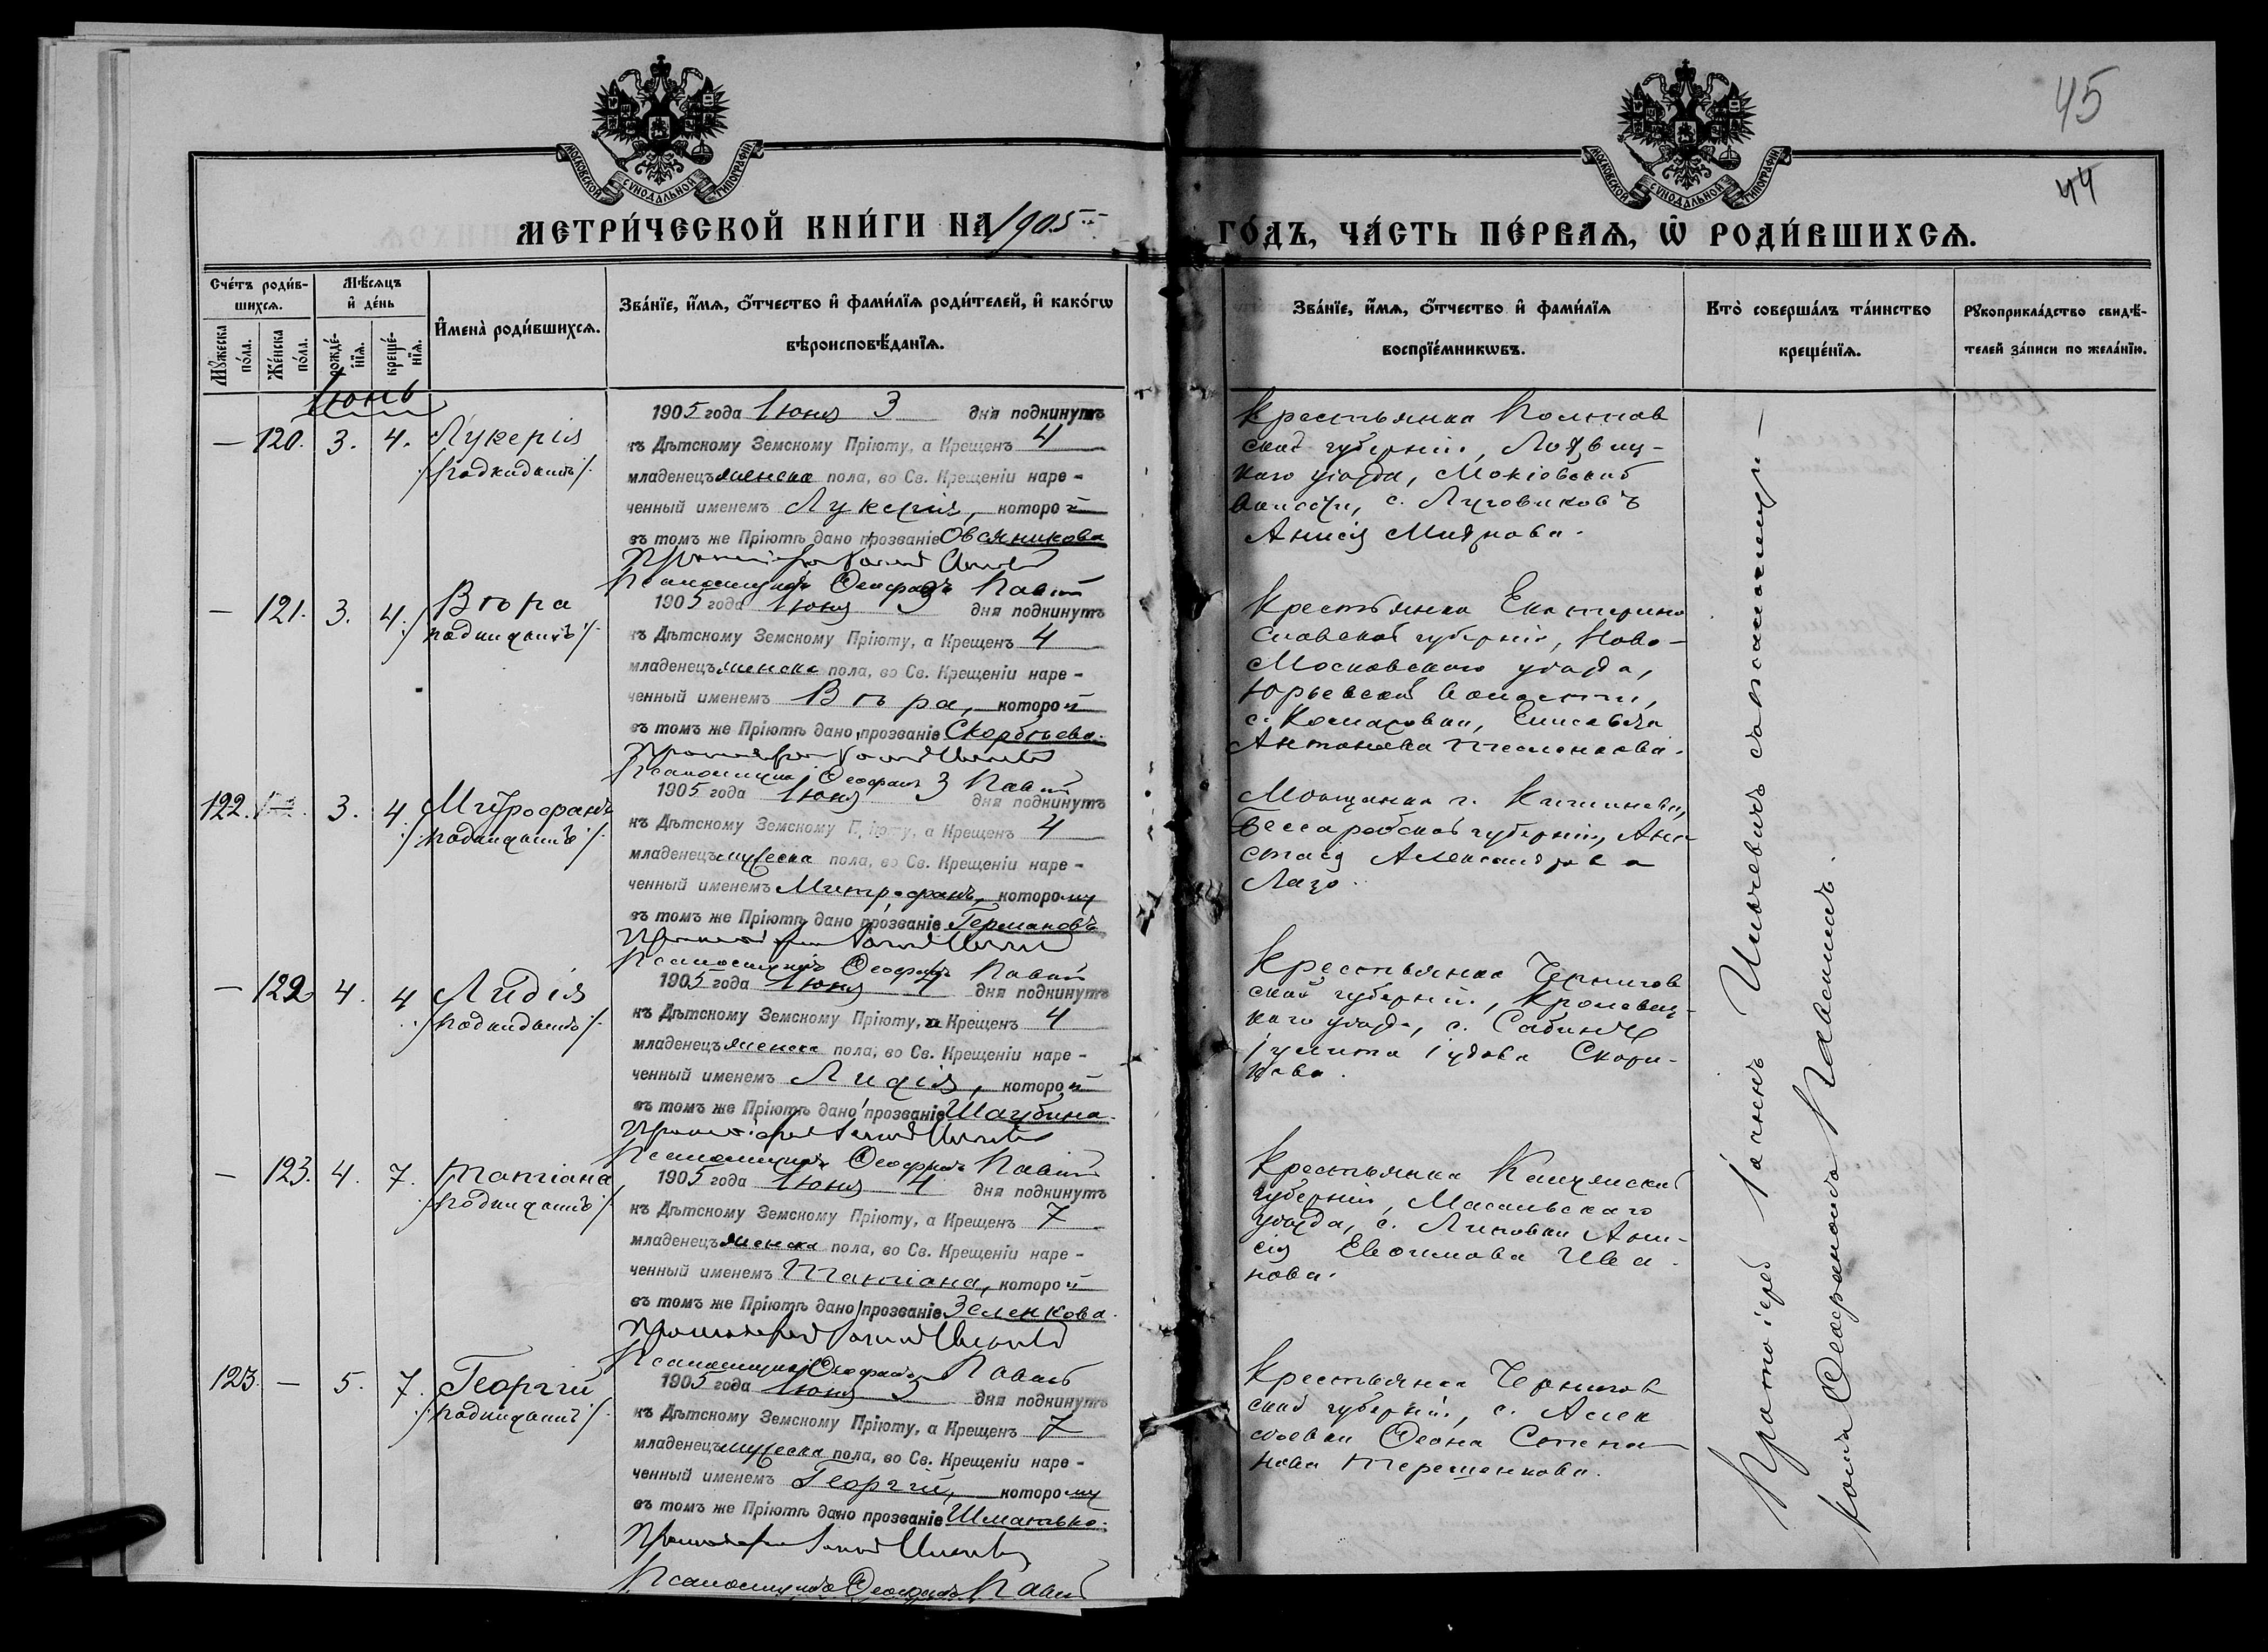 45
44
МОСКОВСКОЙ СѴНОДАЛЬНОЙ ТИПОГРАФІИ
МОСКОВСКОЙ СѴНОДАЛЬНОЙ ТИПОГРАФІИ
МЕТРИ́ЧЕСКОЙ КНИ́ГИ НА 1905
ГО́ДЪ, ЧА́СТЬ ПЕ́РВАѦ, Ѡ҆ РОДИ́ВШИХСѦ.
Сче́тъ роди́в-
шихсѧ.
Мꙋ́жеска по́ла.
Же́нска по́ла.
Мѣ́сѧцъ
и҆ де́нь
рожде́-нїѧ.
креще́-нїѧ.
И҆мена̀ роди́вшихсѧ.
Зва́нїе, и҆́мѧ, ѻ҆́тчество и҆ фами́лїѧ роди́телей, и҆ како́гѡ
вѣроисповѣ́данїѧ.
Зва́нїе, и҆́мѧ, ѻ҆́тчество и҆ фами́лїѧ
воспрїе́мникѡвъ.
Кто̀ соверша́лъ та́инство
креще́нїѧ.
Рꙋкоприкла́дство свидѣ́-
телей за́писи по жела́нїю.
Іюнь
— 120. 3. 4. Лукерія
/Подкидышъ/
1905 года Іюня 3 дня подкинутъ
къ Дѣтскому Земскому Пріюту, а Крещенъ 4
младенецъ женска пола, во Св. Крещеніи наре-
ченный именемъ Лукерія, которой
въ томъ же Пріютѣ дано прозваніе Овсяникова
Псаломщикъ Ѳеофанъ
Крестьянка Полтав
ской губерніи, Лохвиц-
каго уѣзда,
волости, с. Луговиковъ
Анисія
— 121. 3. 4. Вѣра
/подкидышъ/
1905 года Іюня 3 дня подкинутъ
къ Дѣтскому Земскому Пріюту, а Крещенъ 4
младенецъ женска пола, во Св. Крещеніи наре-
ченный именемъ Вѣра, которой
въ томъ же Пріютѣ дано прозваніе Скорбѣева.
Псаломщикъ Ѳеофанъ
Крестьянка Екатерино
славской губерніи, Ново-
Московскаго уѣзда,
Юрьевской волости,
с. Комаровки, Елисавета
Антонова
122. 3. 4. Митрофанъ
/подкидышъ/
1905 года Іюня 3 дня подкинутъ
къ Дѣтскому Земскому Пріюту, а Крещенъ 4
младенецъ мужеска пола, во Св. Крещеніи наре-
ченный именемъ Митрофанъ, которому
въ томъ же Пріютѣ дано прозваніе Германовъ
Псаломщикъ Ѳеофанъ
Мѣщанка г. Кишинева,
Бессарабской губерніи, Ана
стасія Александрова
Лазо.
— 122 4. 4 Лидія
/подкидышъ/
1905 года Іюня 4 дня подкинутъ
къ Дѣтскому Земскому Пріюту, а Крещенъ 4
младенецъ женска пола, во Св. Крещеніи наре-
ченный именемъ Лидія, которой
въ томъ же Пріютѣ дано прозваніе Шаубина.
Псаломщикъ Ѳеофанъ
Крестьянка Чернигов
ской губерніи, Кролевец-
каго уѣзда, с.
Іулита Іудова
— 123. 4. 7. Татіана
/подкидышъ/
1905 года Іюня 4 дня подкинутъ
къ Дѣтскому Земскому Пріюту, а Крещенъ 7
младенецъ женска пола, во Св. Крещеніи наре-
ченный именемъ Татіана, которой
въ томъ же Пріютѣ дано прозваніе Зеленкова.
Псаломщикъ Ѳеофанъ
Крестьянка Калужской
губерніи, Масальскаго
уѣзда, с. Липовки Ани-
сія Евѳимова Ива-
нова.
123. — 5. 7. Георгій
/подкидышъ/
1905 года Іюня 5 дня подкинутъ
къ Дѣтскому Земскому Пріюту, а Крещенъ 7
младенецъ мужеска пола, во Св. Крещеніи наре-
ченный именемъ Георгій, которому
въ томъ же Пріютѣ дано прозваніе Шматько.
Псаломщикъ Ѳеофанъ
Крестьянка Чернигов
ской губерніи, с. Алек
сѣевки Ѳеона Степа
нова Терешенкова.
Протоіерей Іоаннъ съ псаломщи-
комъ